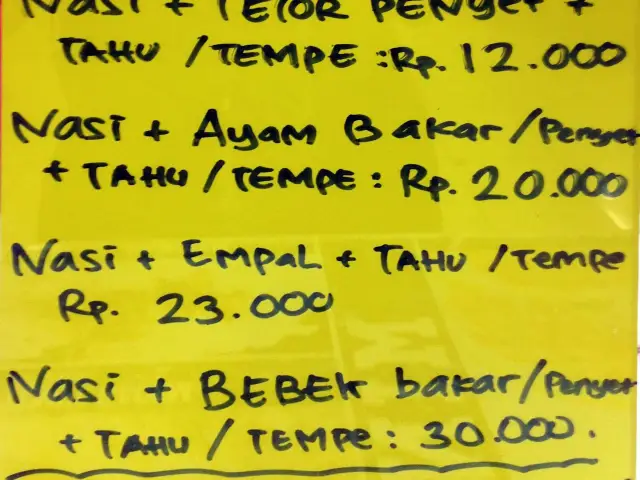 Nasi + TELOR PENyet +
TAHU / TEMPE : Rp. 12.000
Nasi + Ayam Bakar / Penyet
+ TAHU / TEMPE : Rp. 20.000
Nasi + EmpaL + TAHU / Tempe
Rp. 23.000
Nasi + BEBEk bakar / Penyet
+ TAHU / TEMPe : 30.000.